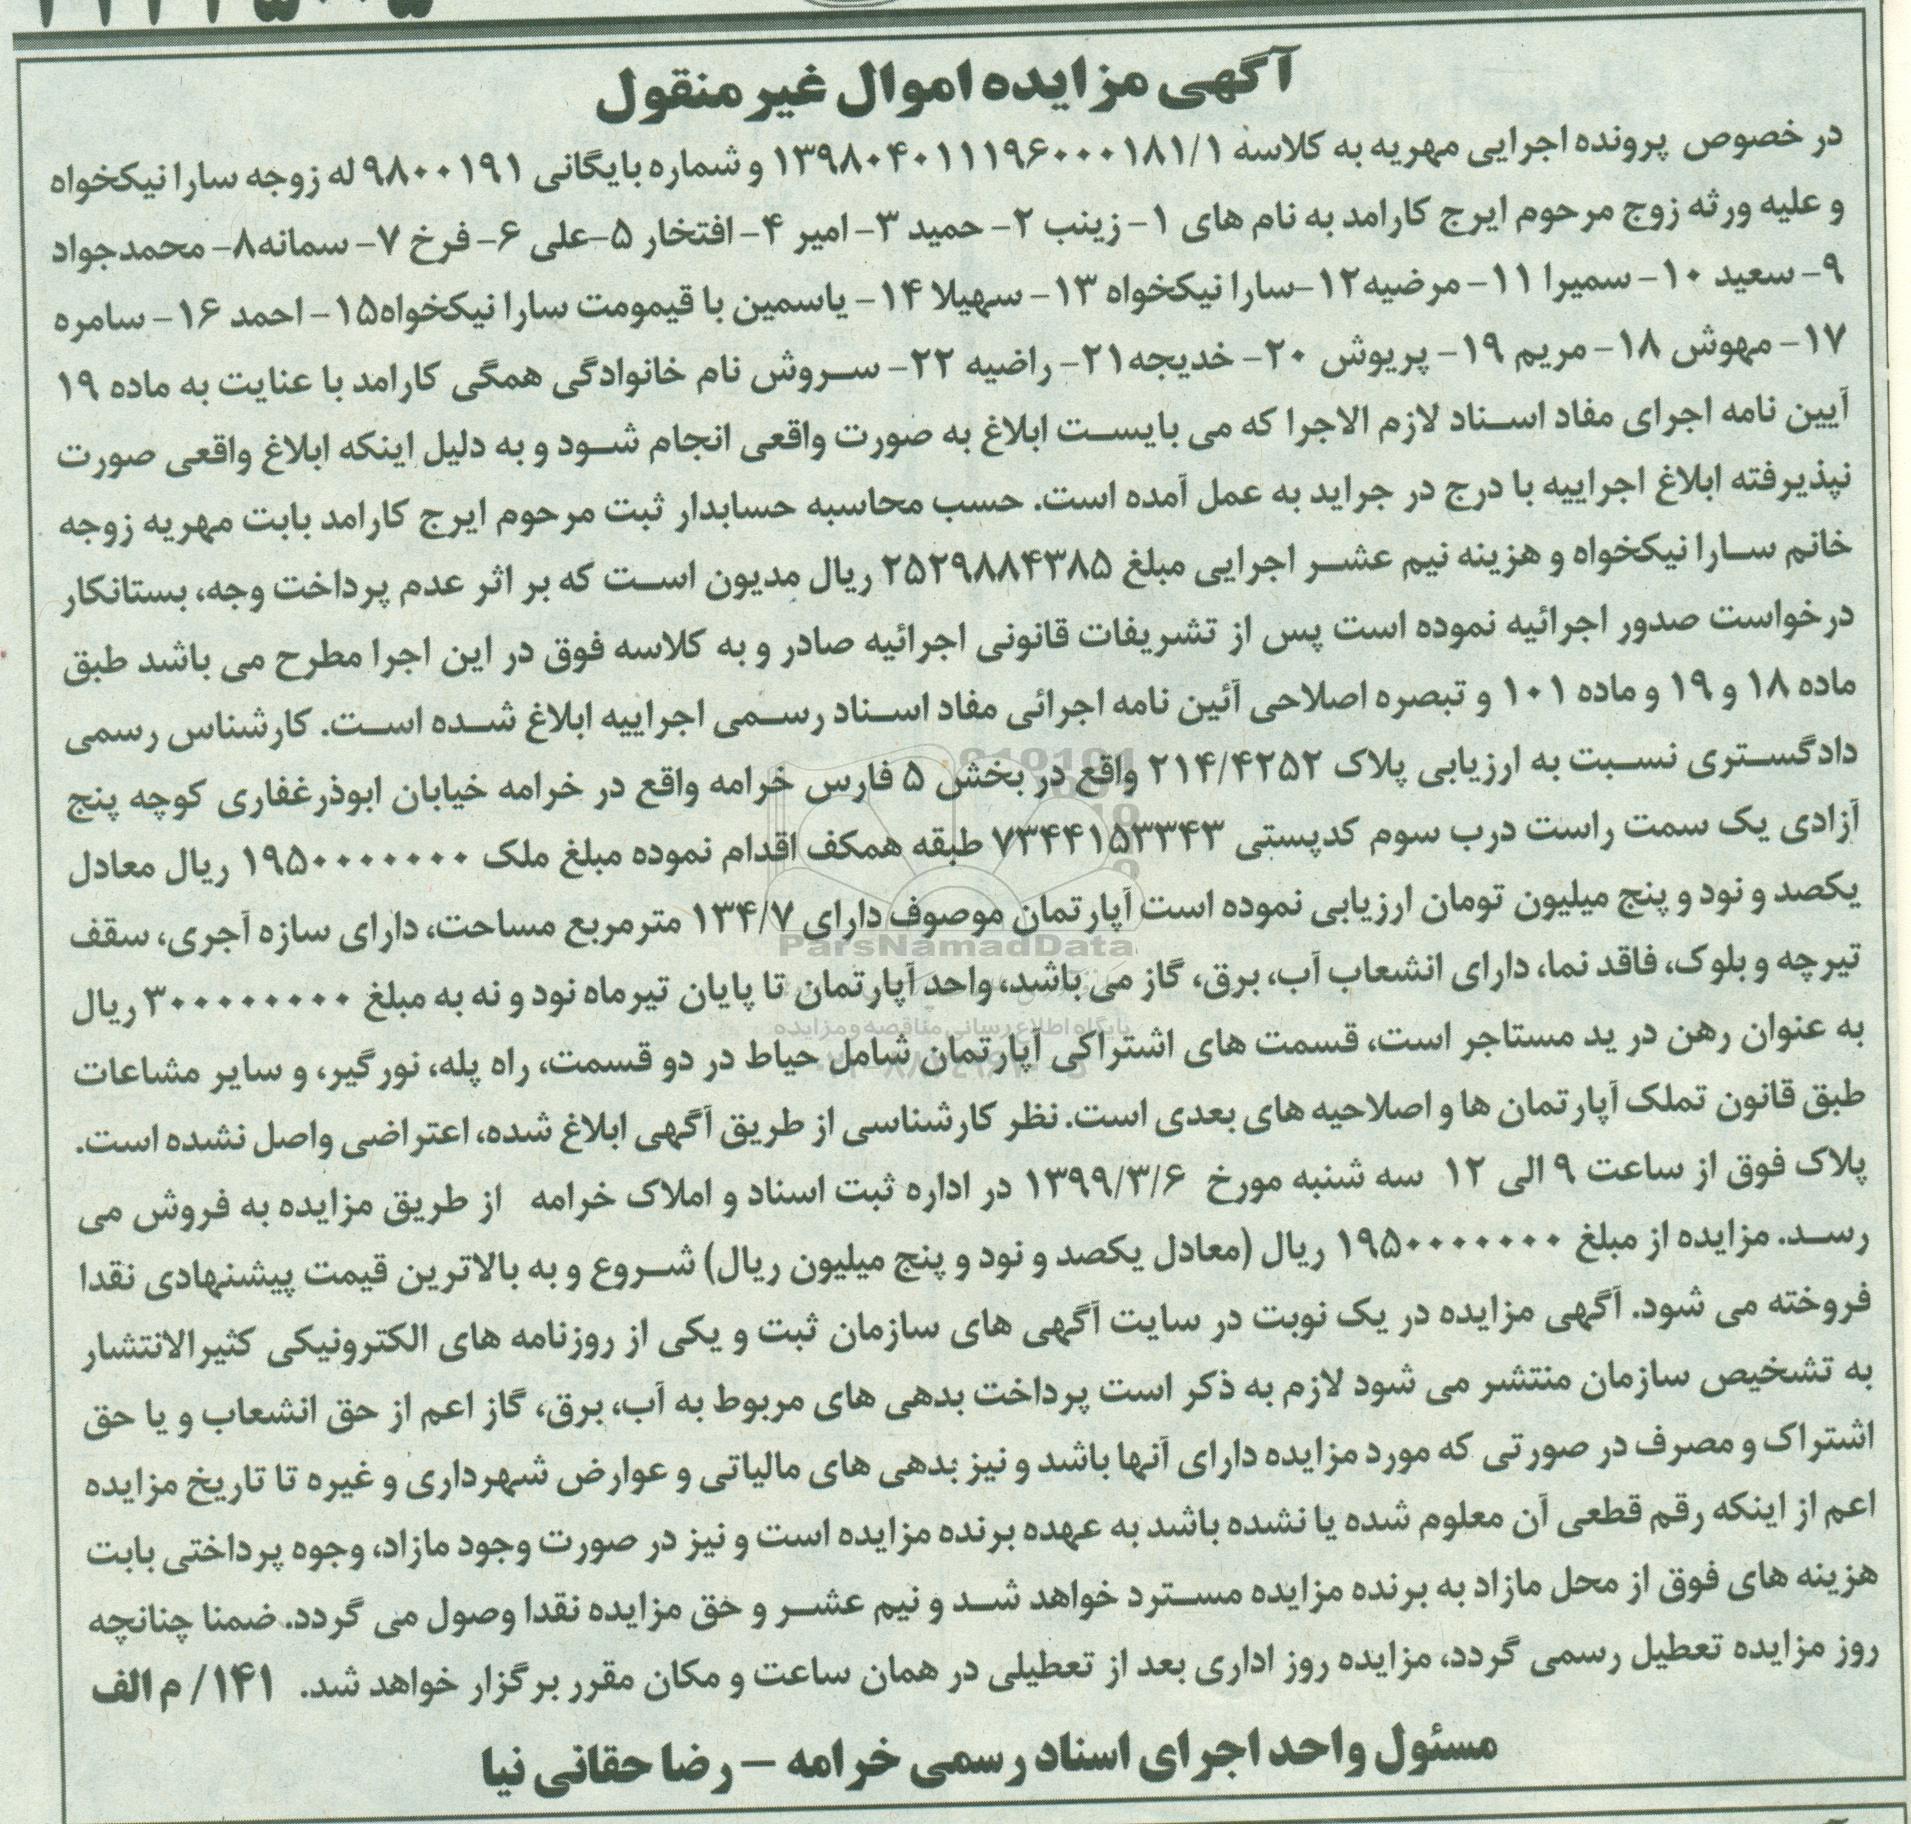 آگهی مزایده اموال غیر منقول
در خصوص پرونده اجرایی مهریه به کلاسه ۱۳۹۸۰۴۰۱۱۱۹۶۰۰۰۱۸۱/۱ و شماره بایگانی ۹۸۰۰۱۹۱ له زوجه سارا نیکخواه
و علیه ورثه زوج مرحوم ایرج کارامد به نام های ۱- زینب ۲- حمید ۳- امیر ۴- افتخار ۵-علی ۶- فرخ ۷- سمانه۸- محمدجواد
۹- سعید ۱۰- سمیرا ۱۱- مرضیه۱۲-سارا نیکخواه ۱۳- سهیلا ۱۴- یاسمین با قیمومت سارا نیکخواه۱۵- احمد ۱۶- سامره
۱۷- مهوش ۱۸- مریم ۱۹- پریوش ۲۰- خدیجه۲۱- راضیه ۲۲- سروش نام خانوادگی همگی کارامد با عنایت به ماده ۱۹
آیین نامه اجرای مفاد اسناد لازم الاجرا که می بایست ابلاغ به صورت واقعی انجام شود و به دلیل اینکه ابلاغ واقعی صورت
نپذیرفته ابلاغ اجراییه با درج در جراید به عمل آمده است. حسب محاسبه حسابدار ثبت مرحوم ایرج کارامد بابت مهریه زوجه
خانم سارا نیکخواه و هزینه نیم عشر اجرایی مبلغ ۲۵۲۹۸۸۴۳۸۵ ریال مدیون است که بر اثر عدم پرداخت وجه، بستانکار
درخواست صدور اجرائیه نموده است پس از تشریفات قانونی اجرائیه صادر و به کلاسه فوق در این اجرا مطرح می باشد طبق
ماده ۱۸ و ۱۹ و ماده ۱۰۱ و تبصره اصلاحی آئین نامه اجرائی مفاد اسناد رسمی اجراییه ابلاغ شده است. کارشناس رسمی
دادگستری نسبت به ارزیابی پلاک ۲۱۴/۴۲۵۲ واقع در بخش ۵ فارس خرامه واقع در خرامه خیابان ابوذرغفاری کوچه پنج
آزادی یک سمت راست درب سوم کدپستی ۷۳۴۴۱۵۳۳۴۳ طبقه همکف اقدام نموده مبلغ ملک ۱۹۵۰۰۰۰۰۰۰ ریال معادل
یکصد و نود و پنج میلیون تومان ارزیابی نموده است آپارتمان موصوف دارای ۱۳۴/۷ مترمربع مساحت، دارای سازه آجری، سقف
ParsNamadData
تیرچه و بلوک، فاقد نما، دارای انشعاب آب، برق، گاز می باشد، واحد آپارتمان تا پایان تیرماه نود و نه به مبلغ ۳۰۰۰۰۰۰۰۰ ریال
پایگاه اطلاع رسانی مناقصه و مزایده
به عنوان رهن در ید مستاجر است، قسمت های اشتراکی آپارتمان شامل حیاط در دو قسمت، راه پله، نورگیر، و سایر مشاعات
طبق قانون تملک آپارتمان ها و اصلاحیه های بعدی است. نظر کارشناسی از طریق آگهی ابلاغ شده، اعتراضی واصل نشده است.
پلاک فوق از ساعت ۹ الی ۱۲ سه شنبه مورخ ۱۳۹۹/۳/۶ در اداره ثبت اسناد و املاک خرامه از طریق مزایده به فروش می
رسد. مزایده از مبلغ ۱۹۵۰۰۰۰۰۰۰ ریال (معادل یکصد و نود و پنج میلیون ریال) شروع و به بالاترین قیمت پیشنهادی نقدا
فروخته می شود. آگهی مزایده در یک نوبت در سایت آگهی های سازمان ثبت و یکی از روزنامه های الکترونیکی کثیرالانتشار
به تشخیص سازمان منتشر می شود لازم به ذکر است پرداخت بدهی های مربوط به آب، برق، گاز اعم از حق انشعاب و یا حق
اشتراک و مصرف در صورتی که مورد مزایده دارای آنها باشد و نیز بدهی های مالیاتی و عوارض شهرداری و غیره تا تاریخ مزایده
اعم از اینکه رقم قطعی آن معلوم شده یا نشده باشد به عهده برنده مزایده است و نیز در صورت وجود مازاد، وجوه پرداختی بابت
هزینه های فوق از محل مازاد به برنده مزایده مسترد خواهد شد و نیم عشر و حق مزایده نقدا وصول می گردد. ضمنا چنانچه
روز مزایده تعطیل رسمی گردد، مزایده روز اداری بعد از تعطیلی در همان ساعت و مکان مقرر برگزار خواهد شد. ۱۴۱/ م الف
مسئول واحد اجرای اسناد رسمی خرامه – رضا حقانی نیا